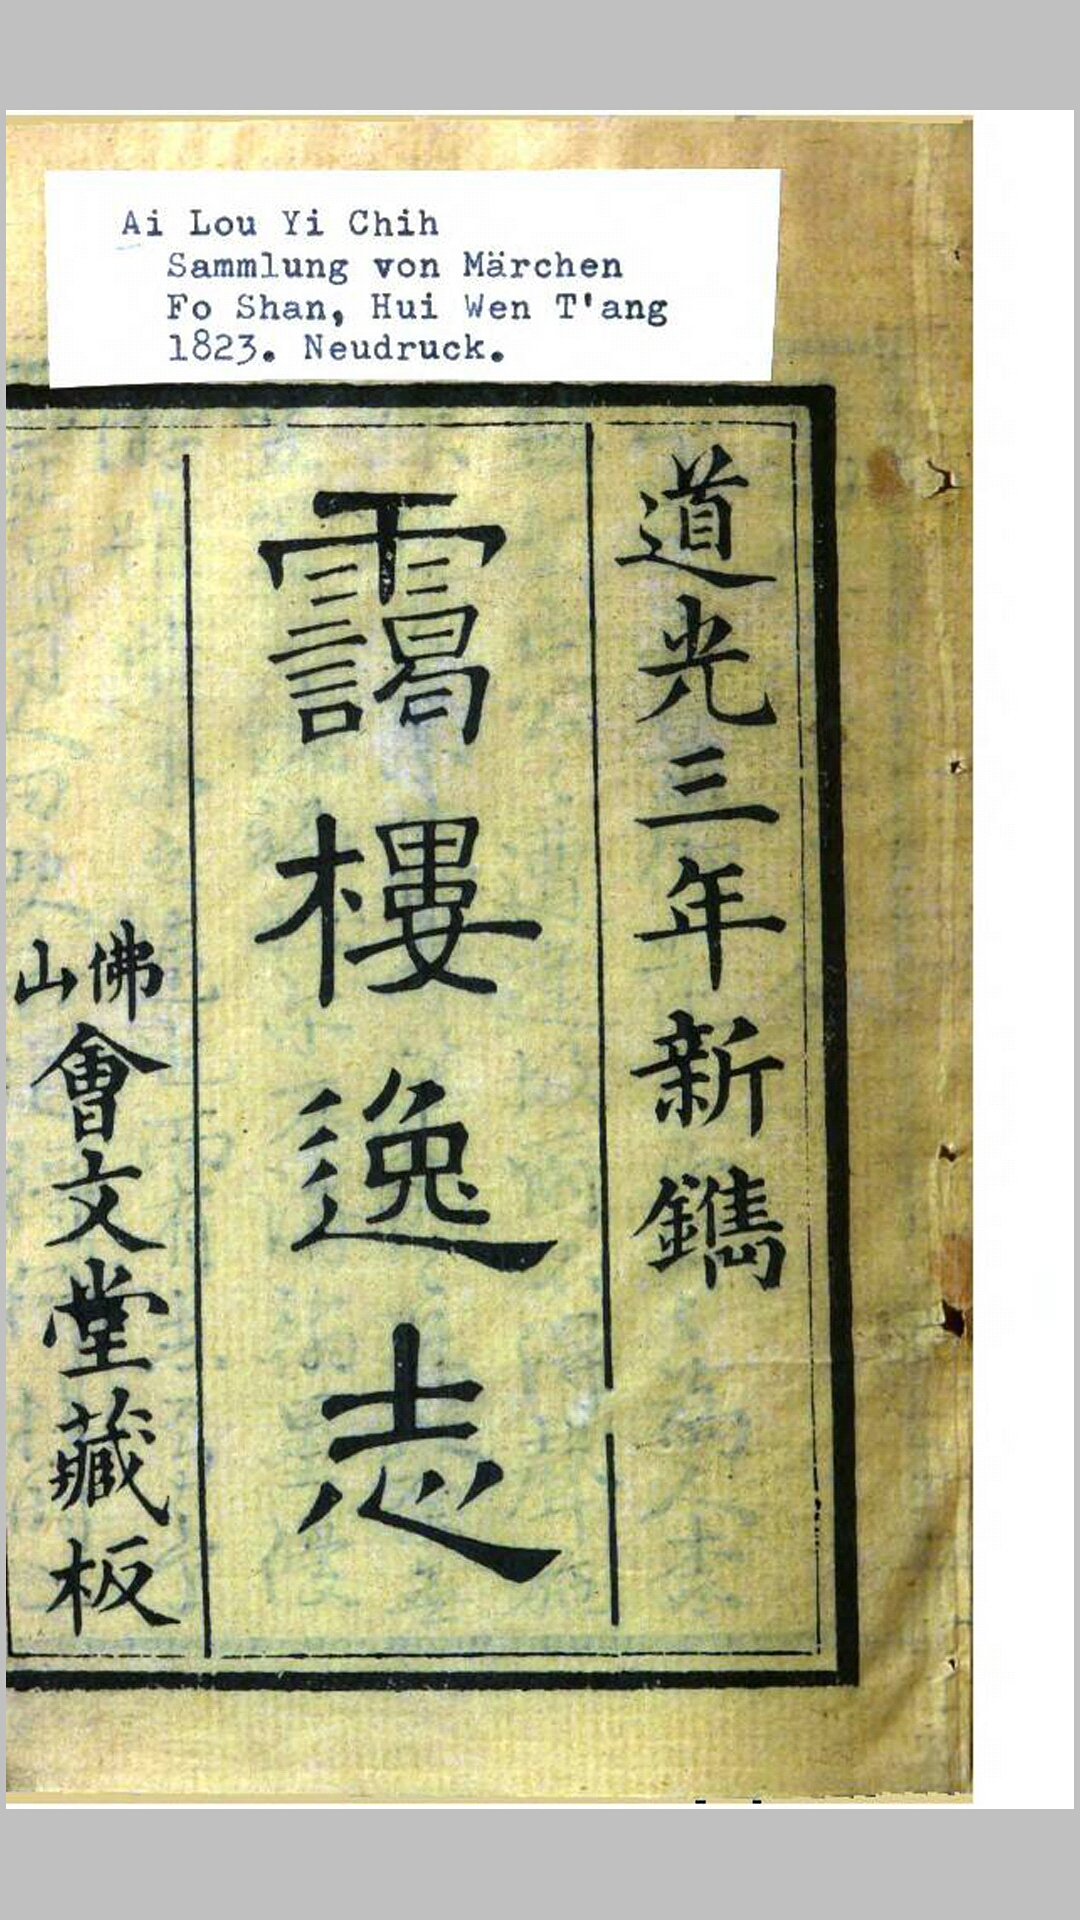 Ai Lou Yi Chih
Sammlung von Märchen
Fo Shan, Hui Wen T'ang
1823. Neudruck.
道光三年新鐫
靄樓逸志
佛山會文堂藏板